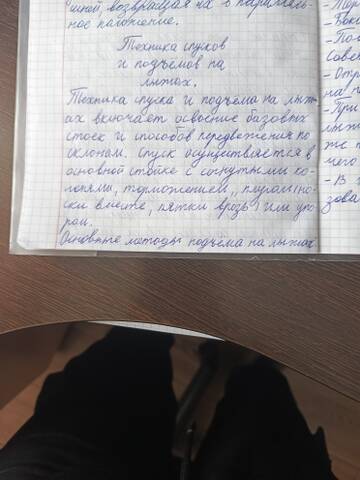 шной возвращая их в параллель-
ное положение.
Техника спусков
и подъёмов на
лыжах.
Техника спуска и подъёма на лыж-
ах включает освоение базовых
стоек и способов передвежения по
склонам. Спуск осуществяется в
основной стойке с согнутыми ко-
ленями, торможением „плугом“ (но-
ски вместе, пятки врозь) или упо-
ром.
Основные методы подъёма на лыжах
- Пос
Совет
- Отр
на п
- При
лыжи
же п
чего
- В
зова